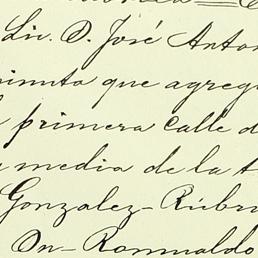 Lic. D. José Anton
minuta que agregu
primera calle d
media de la t
Gonzalez-Rúbri
On- Romualdo